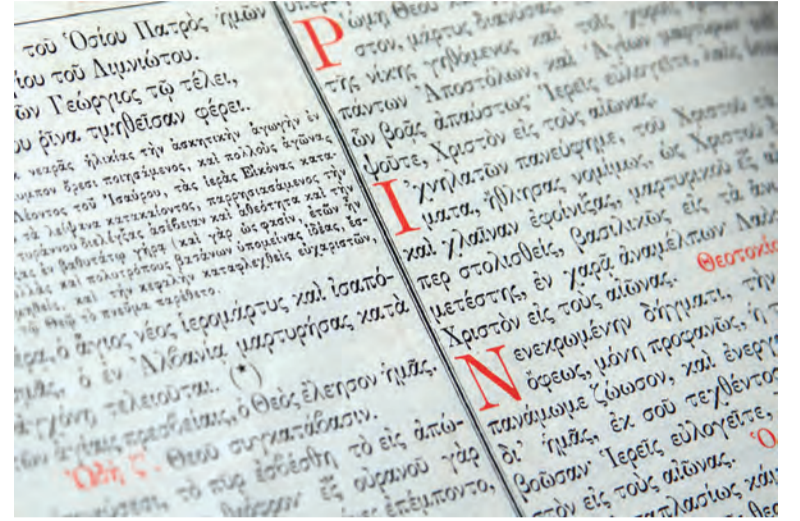 τοῦ Ὁσίου Πατρὸς ἡμῶν
ίου τοῦ Λιμνιώτου.
ῶν Γεώργιος τῷ τέλει,
ου ῥῖνα τμηθεῖσαν φέρει.
νεαρᾶς ἡλικίας τὴν ἀσκητικὴν ἀγωγὴν ἐν
υμπον ὄρεσι ποιησάμενος, καὶ πολλοὺς ἀγῶνας
Λέοντος τοῦ Ἰσαύρου, τὰς ἱερὰς Εἰκόνας κατα-
τὰ λείψανα κατακαίοντος, παρρησιασάμενος τὴν
τυράννου διελέγξας ἀσέβειαν καὶ ἀθεότητα καὶ τὴν
ἐν βαθυτάτῳ γήρᾳ (καὶ γὰρ ὡς φασίν, ἐτῶν ἦν
καὶ πολυτρόπους βασάνων ὑπομείνας ἰδέας, ἐσ-
καὶ τὴν κεφαλὴν καταφλεχθεὶς εὐχαριστῶν,
τῷ Θεῷ τὸ πνεῦμα παρέθετο.
ὁ ἅγιος νέος ἱερομάρτυς καὶ ἰσαπό-
ὁ ἐν Ἀλβανίᾳ μαρτυρήσας κατὰ
ἀγχόνῃ τελειοῦται. (*)
ἁγίαις πρεσβείαις, ὁ Θεὸς ἐλέησον ἡμᾶς.
ᾨδὴ ζ΄. Θεοῦ συγκατάβασιν.
τὸ πῦρ ἐσβέσθη τὸ εἰς ἀπώ-
ἐξ οὐρανοῦ γὰρ
ἐπέμποντο,
Ῥώμῃ Θεοῦ
στον, μάρτυς διανύσας,
τῆς νίκης γηθόμενος καὶ τοῖς χοροῖς
πάντων Ἀποστόλων, καὶ Ἁγίων μαρτύρων
ὧν βοᾷς ἀπαύστως· Ἱερεῖς εὐλογεῖτε, λαὸς
ψοῦτε, Χριστὸν εἰς τοὺς αἰῶνας.
Ἰχνηλατῶν πανεύφημε, τοῦ Χριστοῦ τὰ
ματα, ἤθλησας νομίμως, ὡς Χριστοῦ
καὶ χλαῖναν ἐφοίνιξας, μαρτυρικοῦ ἐξ αἵ
περ στολισθείς, βασιλικῶς εἰς τὰ ἄνω
μετέστης, ἐν χαρᾷ ἀναμέλπων Λαὸς
Χριστὸν εἰς τοὺς αἰῶνας. Θεοτοκίο
Νενεκρωμένην δήγματι, τὴν
ὄφεως, μόνη προφανῶς, ἡ τ
πανάμωμε ζώωσον, καὶ ἐνεργ
δι᾽ ἡμᾶς, ἐκ σοῦ τεχθέντος
βοῶσαν· Ἱερεῖς εὐλογεῖτε,
στὸν εἰς τοὺς αἰῶνας. Ὁ
πταπλασίως κάμ